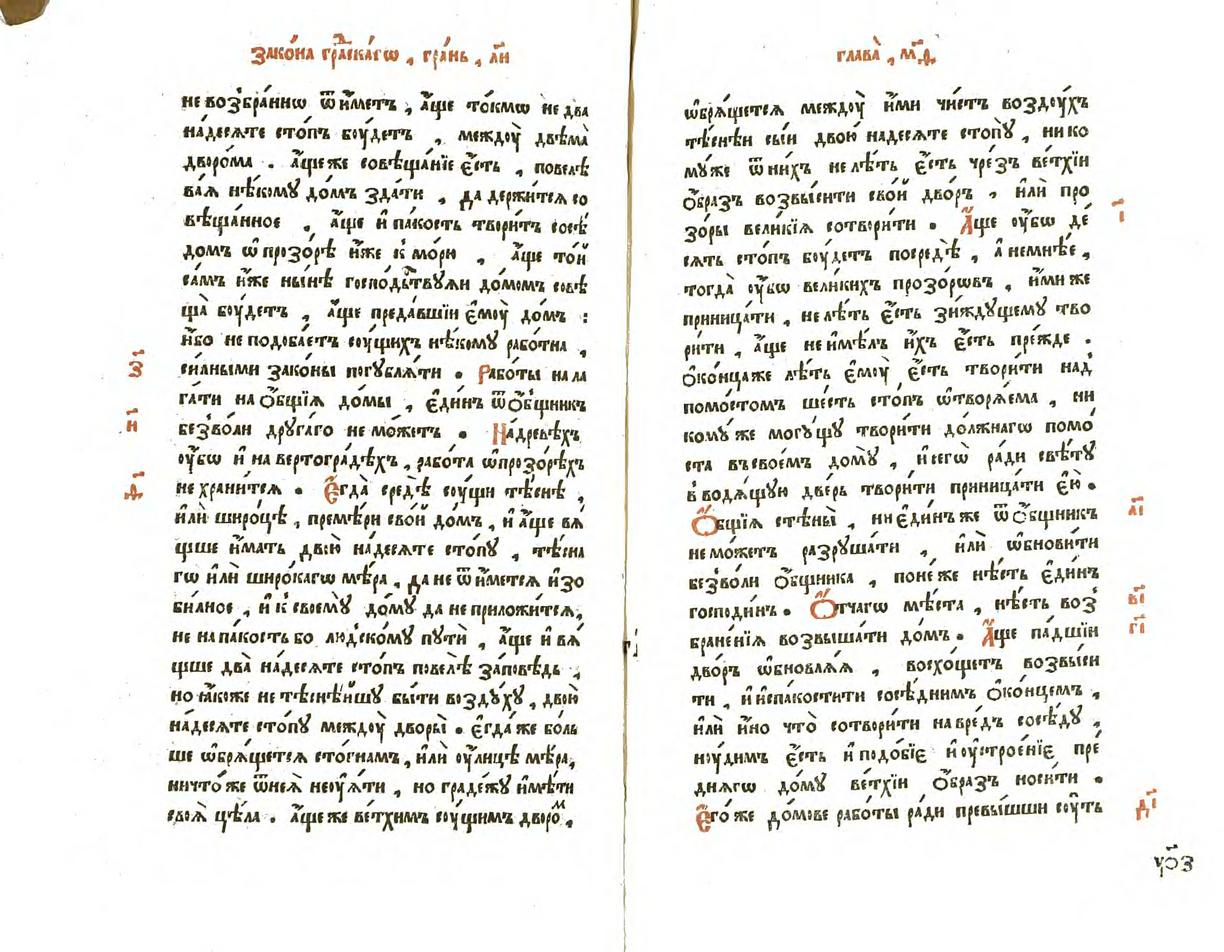 Зако́на гра́дскагѡ , гра́нь , л҃и
не возбра́ннѡ ѿи́метъ , а́ще то́кмѡ не два
на́десѧте сто́пъ бꙋ́детъ , междоу̀ двѣма̀
дворо́ма . а́щеже совѣща́нїе є҆́сть , повелѣ
ва́ѧ нѣ́кому до́мъ зда́ти , да держи́тсѧ со
вѣща́нное , а́ще и҆ па́кость твори́тъ сосѣ́
домъ ѡ҆ прозо́рѣ и҆́же к мо́рю , а́ще то́й
са́мъ и҆́же ны́нѣ госпо́дьствꙋѧи до́момъ совѣ
ща̀ бꙋ́детъ , а́ще преда́вшїи є҆моу̀ до́мъ :
и҆́бо не подоба́етъ сꙋ́щихъ нѣ́кому рабо́тна ,
си́лными зако́ны погублѧ́ти . Рабо́ты нала
з҃
га́ти на ѻ҆́бщїѧ до́мы , є҆ди́нъ ѿ ѻ҆́бщникъ
безво́ли друга́го не мо́жетъ . На́древѣхъ
и҃
оу҆́бѡ и҆ на вертогра́дѣхъ , рабо́та ѡ҆прозо́рѣхъ
не храни́тсѧ . Є҆гда̀ средѣ̀ сꙋ́щи тѣ́снѣ ,
ѳ҃
и҆лѝ широ́цѣ , премѣ́ри сво́й до́мъ , и҆ а́ще вѧ́
щше и҆́мать двою̀ на́десѧте стопꙋ̀ , тѣ́сна
гѡ и҆лѝ широ́кагѡ мѣ́ра , да не ѿи́метсѧ и҆зо
би́лное , и҆ к своемꙋ̀ до́мꙋ да не приложи́тсѧ ,
не на па́кость бо людско́му путѝ , а́ще и҆ вѧ́
щше два̀ на́десѧте сто́пъ повелѣ̀ за́повѣдь ,
но ꙗ҆́коже не тѣснѣ́йшу бы́ти возду́ху , двою̀
на́десѧте сто́пу междоу̀ дворы̀ . є҆гда́же бо́ль
ше ѡ҆брѧ́щетсѧ сто́гнамъ , и҆лѝ оу҆́лицѣ мѣ́ра ,
ничто́же ѿ неѧ̀ не оу҆ѧ́ти , но гра́дежꙋ и҆мѣ́ти
своѧ̀ цѣ́ла . а́щеже ве́тхимъ сꙋ́щимъ дворо́м ,
глава̀ , м҃ѳ
ѡ҆брѧ́щетсѧ междоу̀ и҆́ми чи́стъ воздꙋ́хъ
тѣснѣ́и сы́и двою̀ на́десѧте стопꙋ̀ , нико
му́же ѿ ни́хъ не лѣ́ть є҆́сть чре́зъ ве́тхїи
ѻ҆́бразъ возвы́сити сво́й дво́ръ , и҆лѝ про
зо́ры вели́кїѧ сотвори́ти . А҆́ще оу҆́бѡ де́
і҃
сѧть сто́пъ бꙋ́детъ посредѣ̀ , а҆ не мнѣ́е ,
тогда̀ оу҆́бѡ вели́кихъ прозо́рѡвъ , и҆́миже
приница́ти , не лѣ́ть є҆́сть зи́ждꙋщему тво
ри́ти , а́ще не и҆мѣ́лъ и҆́хъ є҆́сть пре́жде .
ѻ҆ко́нцаже лѣ́ть є҆мꙋ̀ є҆́сть твори́ти над̾
помо́стомъ ше́сть сто́пъ ѿтворѧ́ема , ни
кому́же могꙋ́щꙋ твори́ти до́лжнагѡ помо́
ста въ свое́мъ до́мꙋ , и҆ сегѡ̀ ра́ди свѣ́тꙋ
вводѧ́щую две́рь твори́ти приница́ти є҆́ю .
Ѻ҆́бщїѧ стѣны̀ , ни є҆ди́нъже ѿ ѻ҆́бщникъ
а҃і
не мо́жетъ разруша́ти , и҆лѝ ѡ҆бнови́ти
безво́ли ѻ҆́бщника , поне́же нѣ́сть є҆ди́нъ
господи́нъ . Ѻ҆́тчагѡ мѣ́ста , нѣ́сть воз̾
в҃і
бране́нїѧ возвыша́ти до́мъ . А҆́ще па́дшїи
г҃і
дво́ръ ѡ҆бновлѧ́ѧ , восхо́щетъ возвы́си
ти , и҆ и҆спакости́ти сосѣ́днимъ ѻ҆ко́нцемъ ,
и҆лѝ и҆́но что̀ сотвори́ти на вре́дъ сосѣ́дꙋ ,
нꙋ́димъ є҆́сть и҆ подо́бїе и҆ оу҆строе́нїе пре́
днѧгѡ до́мꙋ ве́тхїи ѻ҆́бразъ носи́ти .
Є҆го́же до́мове рабо́ты ра́ди превы́шши сꙋ́ть
д҃і
уо҃з